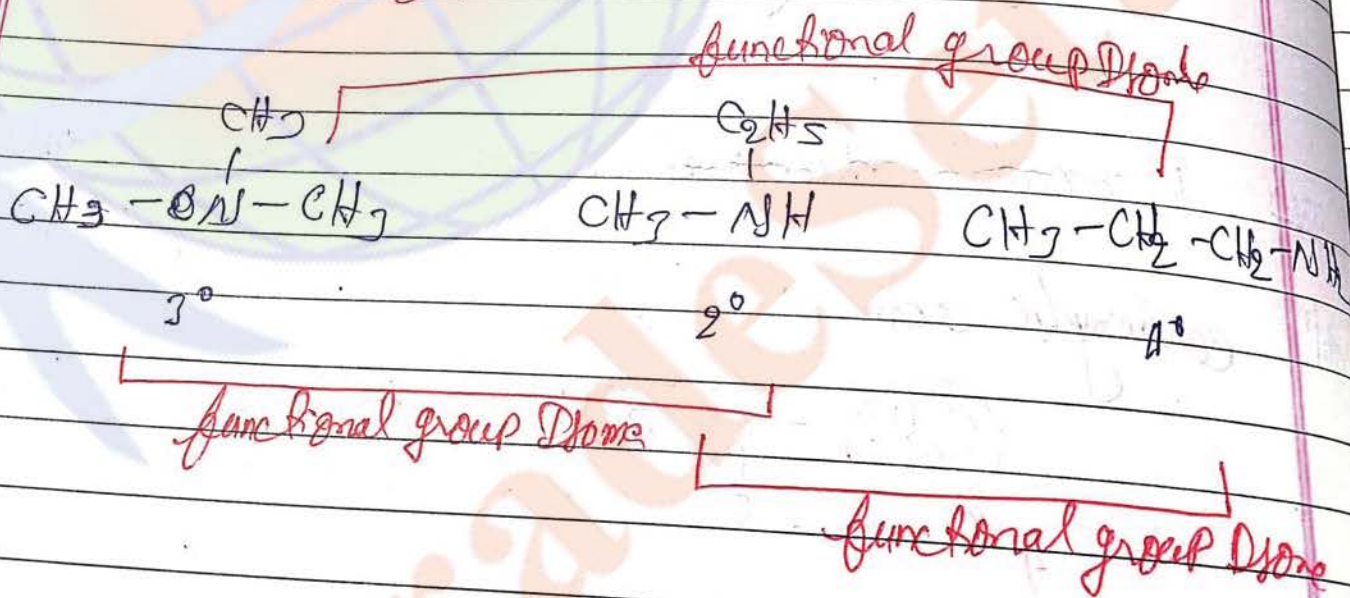 functional group Isome
CH3 C2H5
CH3 - N - CH3 CH3 - NH CH3 - CH2 - CH2 - NH
3° 2° 1°
functional group Isome
functional group Isome